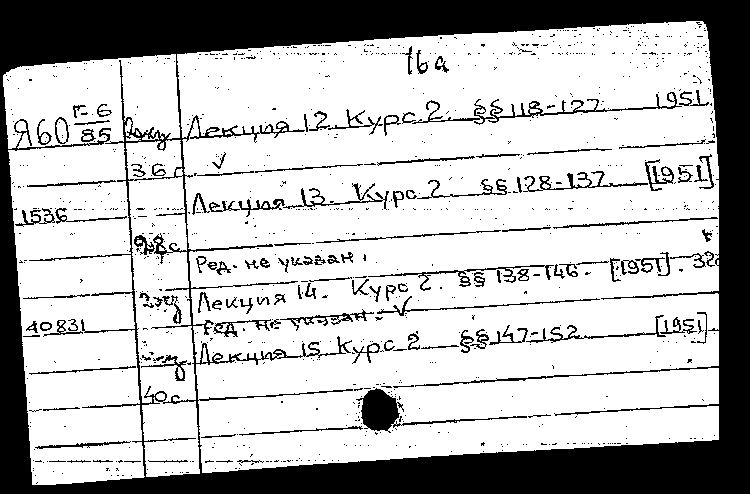 16а
Я60 Г-6/85 2экз Лекция 12. Курс 2. §§ 118-127. 1951
36 с √
1536 - Лекция 13. Курс 2. §§ 128-137. [1951]
с
Ред. не указан.
2экз Лекция 14. Курс 2. §§ 138-146. [1951]. 32с
40831 Ред. не указан. √
Лекция 15 Курс 2 §§ 147-152. [1951].
40 с